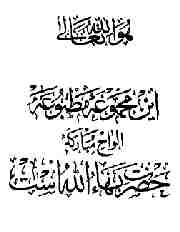 هو الله تعالی
این مجموعه مطبوعه
الواح مبارکه
حضرت بهاءالله است